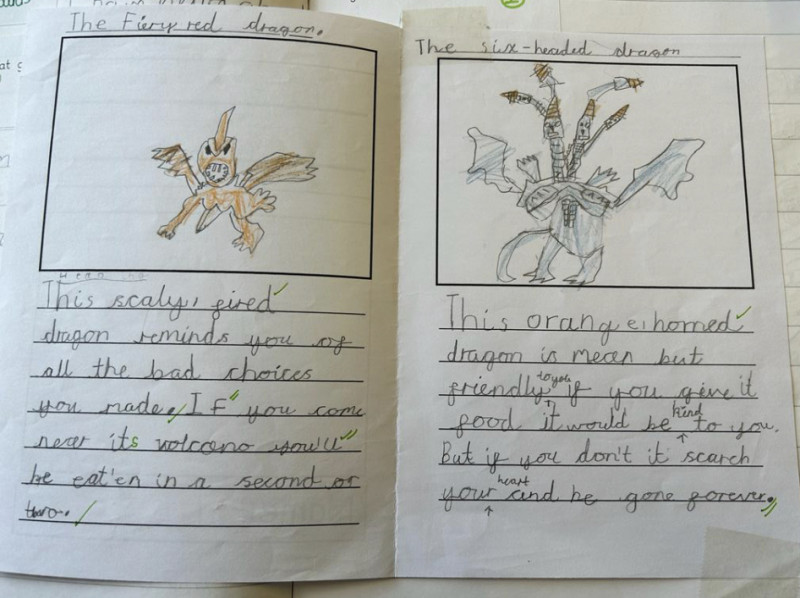 The Fiery red dragon.
This scaly, fired
dragon reminds you of
all the bad choices
you made. If you come
near its volcano you'll
be eat'en in a second or
two.
The six-headed dragon
This orange, horned
dragon is mean but
friendly to you if you give it
food it would be kind to you.
But if you don't it scarch
your heart and be gone forever.